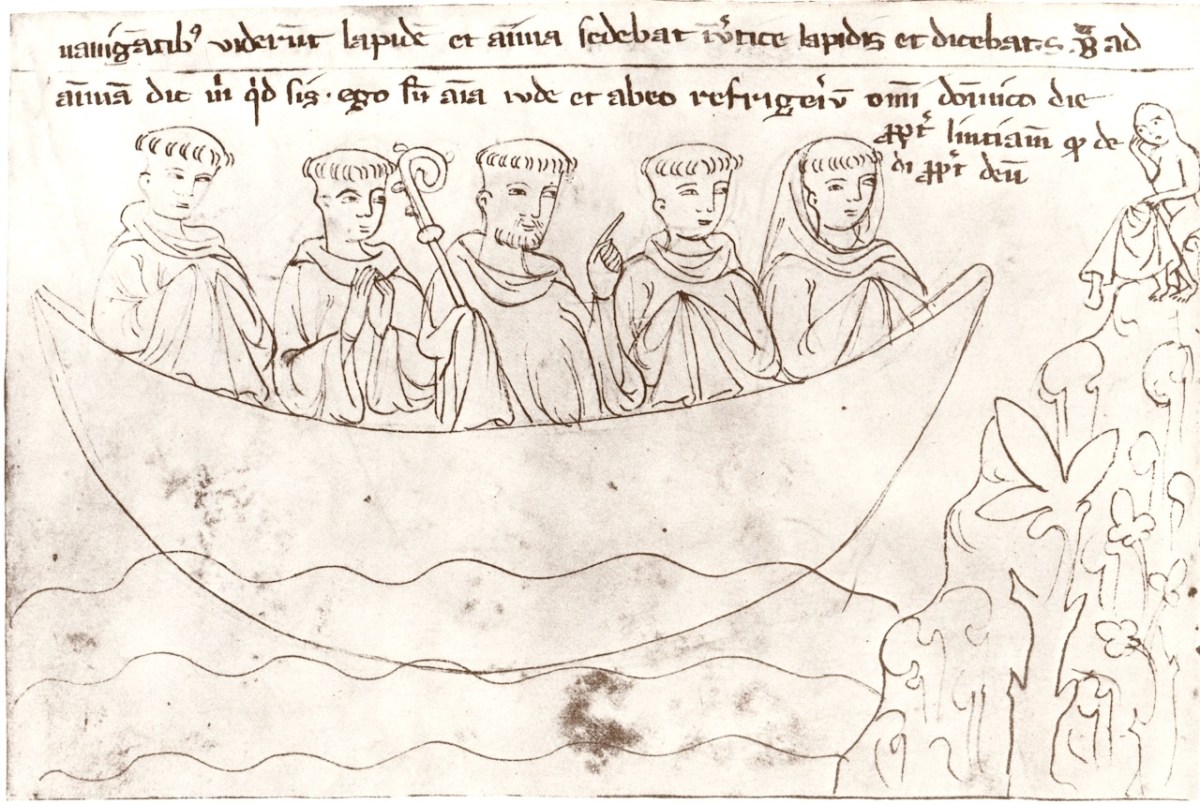 nauigātibꝰ viderūt lapidē et aīma sedebat ī v̓tice lapidis et dicebat s. ad
aīmā dic m̄ qd sis · ego sū aīa iude et abeo refrigeriū omī dōīnico die
ꝓpt̓ linciam̄ de
di ꝓpt̓ deū